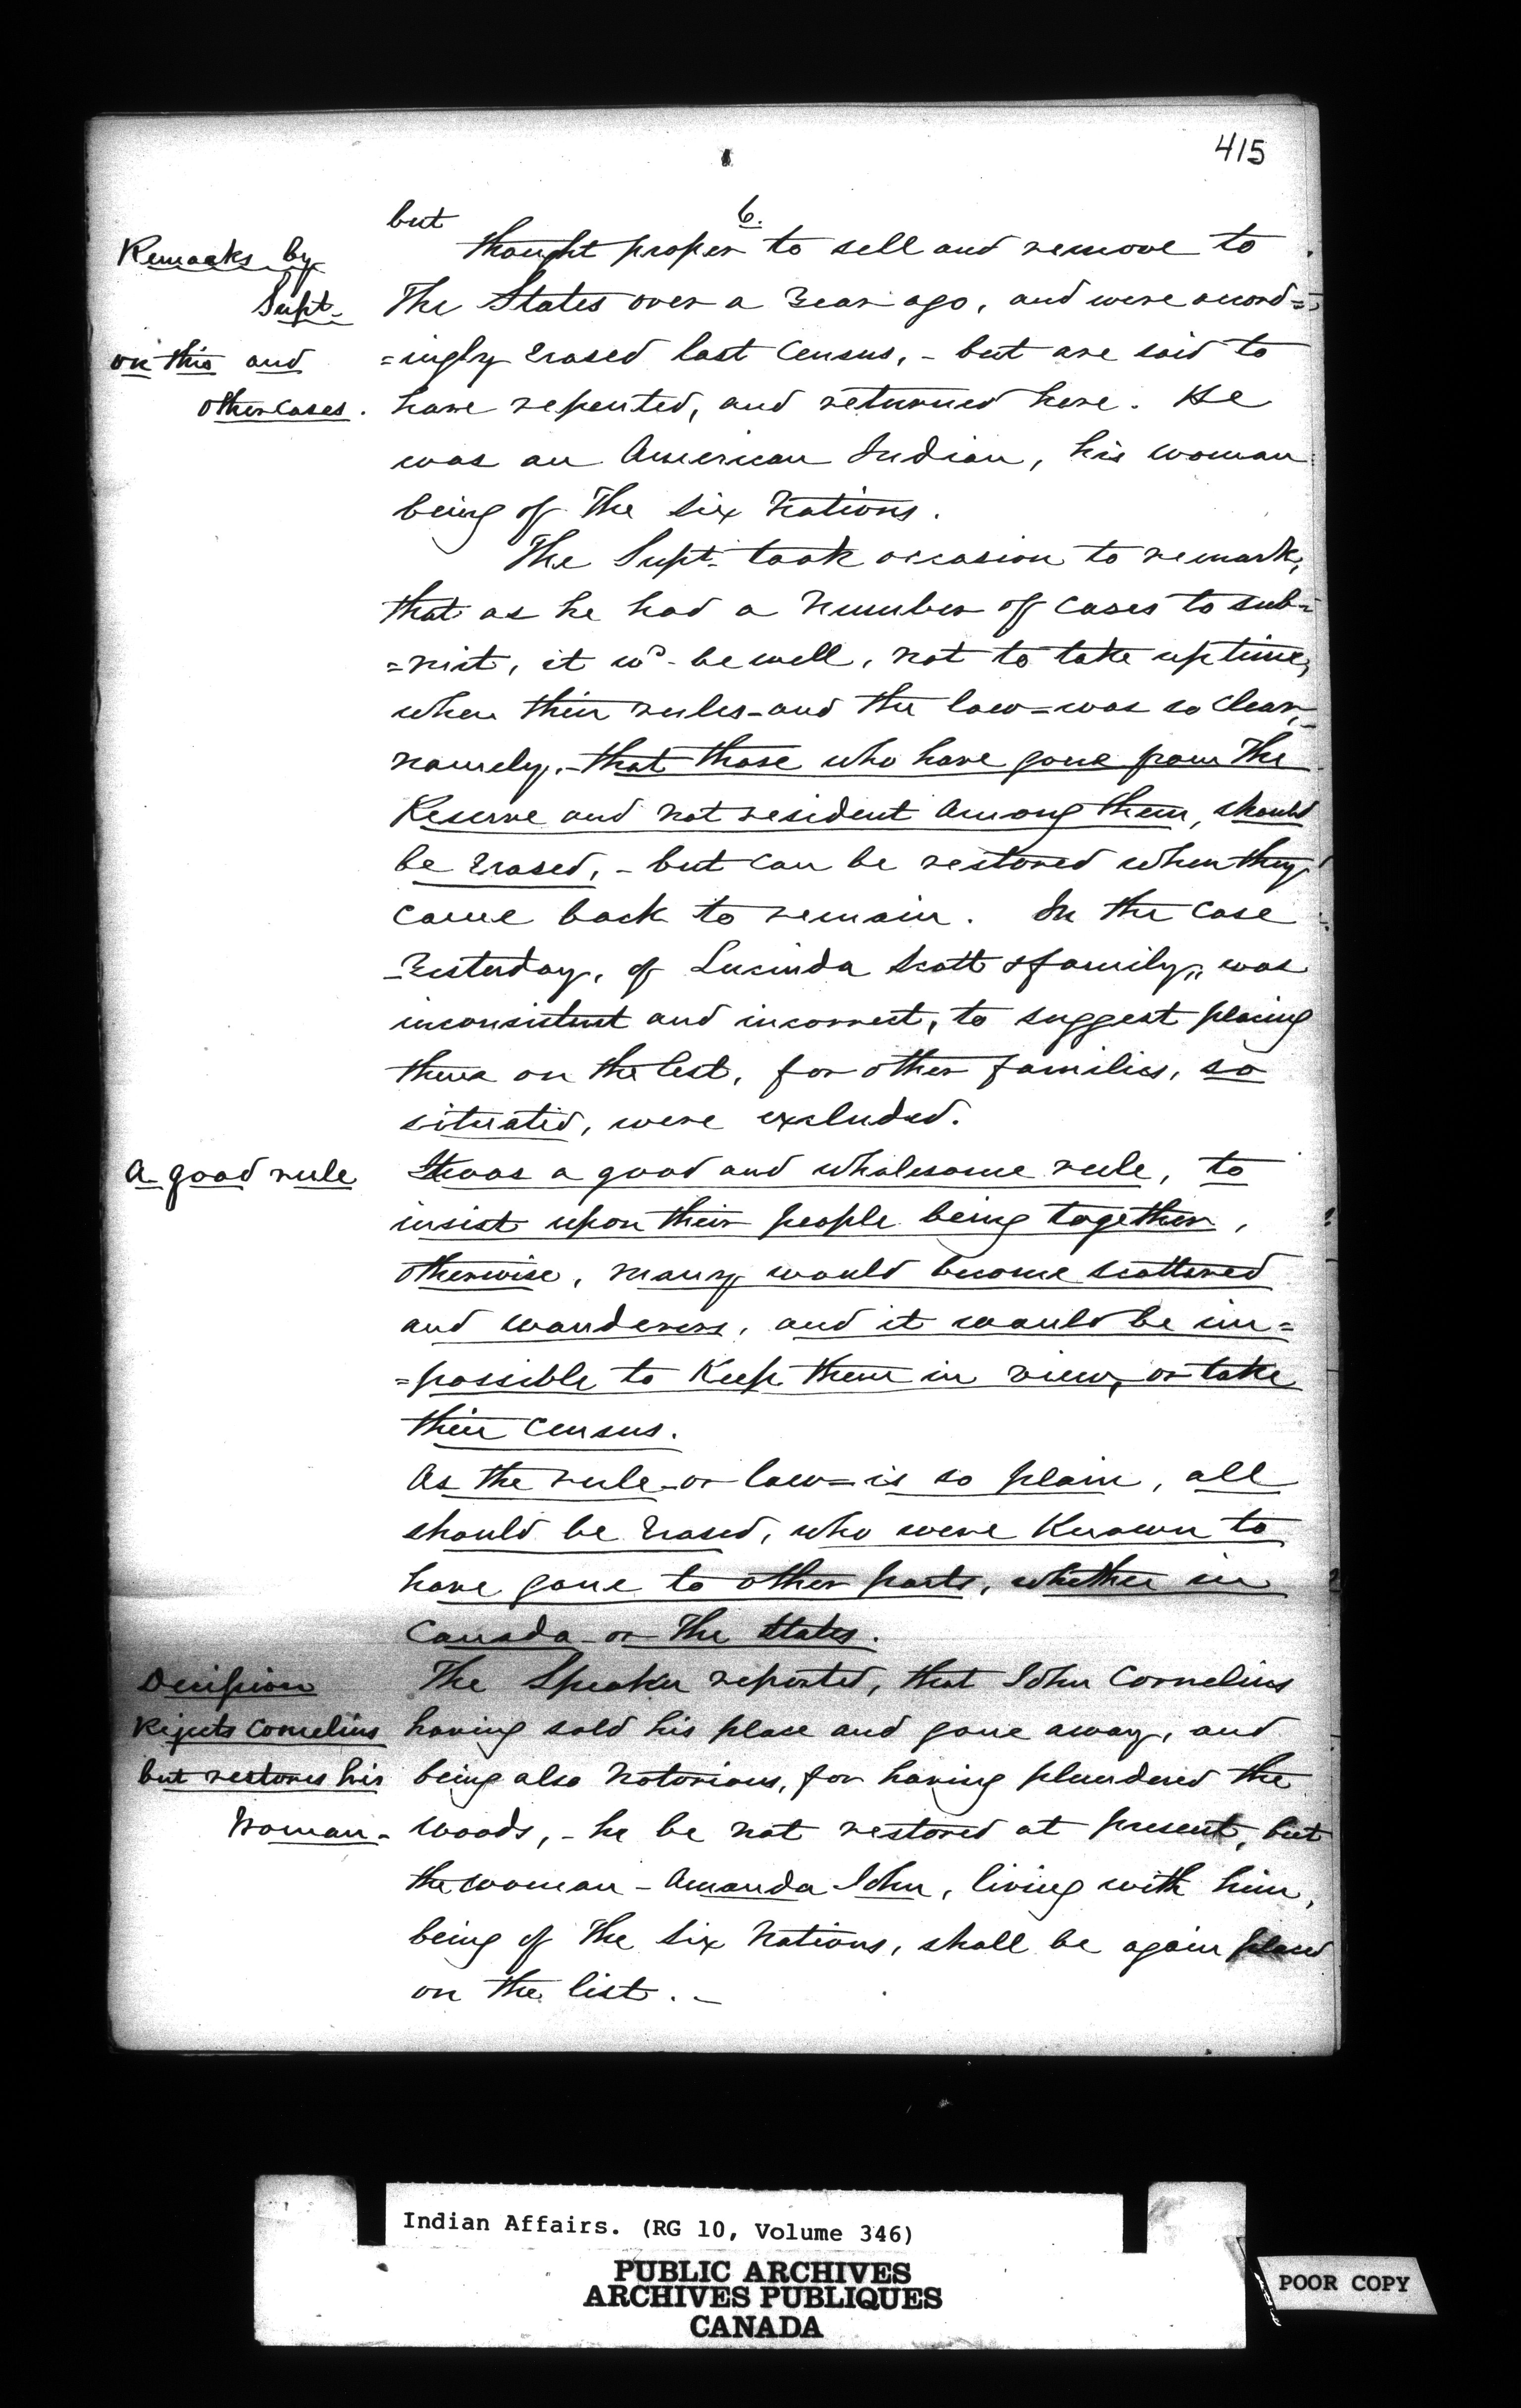 415
6.
but
Remarks by
Supt.
on this and
other cases.
thought proper to sell and remove to
The States over a Year ago, and were accord=
=ingly erased last Census, - but are said to
have repented, and returned here. He
was an American Indian, his woman
being of The Six Nations.
The Supt. took occasion to remark,
that as he had a number of cases to sub=
=mit, it wd. be well, not to take up time,
when their rules - and the law = was so clear,
namely, - that those who have gone from The
Reserve and not resident among them, should
be erased, - but can be restored when they
came back to remain. In the case
Yesterday, of Lucinda Scott & family, was
inconsistent and incorrect, to suggest placing
them on the list, for other families, so
situated, were excluded.
A good rule
It was a good and wholesome rule, to
insist upon their people being together,
otherwise, many would become scattered
and wanderers, and it would be im=
=possible to Keep them in view, or take
their Census.
As the rule - or law = is so plain, all
should be erased, who were Known to
have gone to other parts, whether in
Canada or The States.
Decision
Rejects Cornelius
but restores his
Woman.
The Speaker reported, that John Cornelius
having sold his place and gone away, and
being also notorious, for having plundered the
Woods, - he be not restored at present, but
the woman - Amanda John, living with him,
being of The Six Nations, shall be again placed
on the list. -
Indian Affairs. (RG 10, Volume 346)
PUBLIC ARCHIVES
ARCHIVES PUBLIQUES
CANADA
POOR COPY